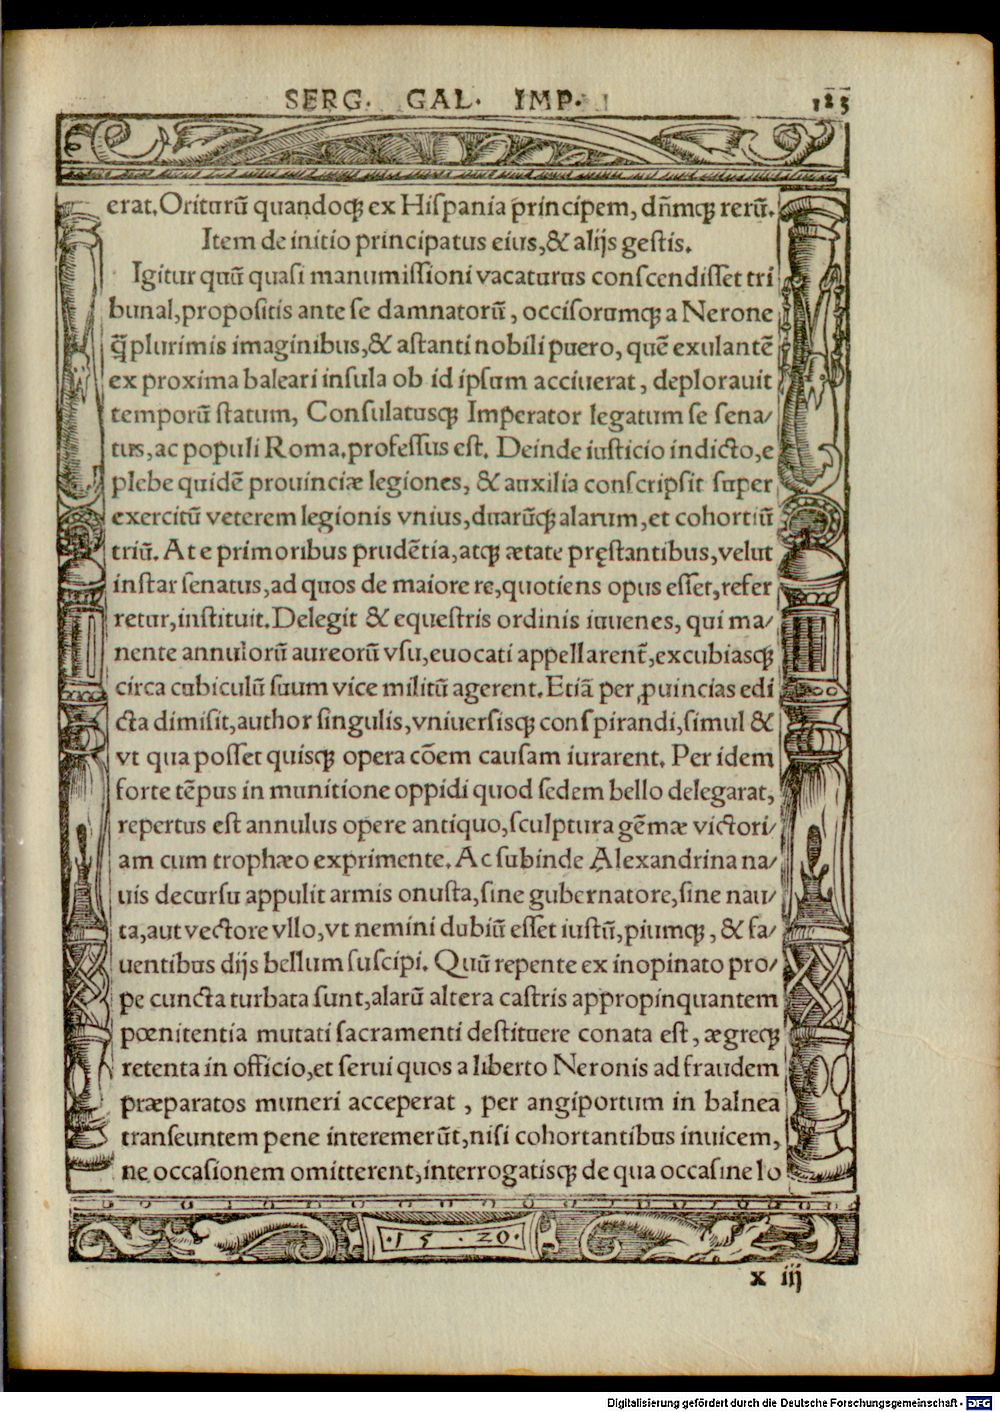 SERG. GAL. IMP. 125
erat. Oriturū quandoq; ex Hiſpania principem, dñmq; rerū.
Item de initio principatus eius, & alijs geſtis.
Igitur quū quaſi manumiſſioni vacaturus conſcendiſſet tri
bunal, propoſitis ante ſe damnatorū, occiſorumq; a Nerone
q̃plurimis imaginibus, & aſtanti nobili puero, quē exulantē
ex proxima baleari inſula ob id ipſum acciuerat, deplorauit
temporū ſtatum, Conſulatusq; Imperator legatum ſe ſena/
tus, ac populi Roma. profeſſus eſt. Deinde iuſticio indicto, e
plebe quidē prouinciæ legiones, & auxilia conſcripſit ſuper
exercitū veterem legionis vnius, duarūq; alarum, et cohortiū
triū. At e primoribus prudētia, atq; ætate pręſtantibus, velut
inſtar ſenatus, ad quos de maiore re, quotiens opus eſſet, refer
retur, inſtituit. Delegit & equeſtris ordinis iuuenes, qui ma/
nente annulorū aureorū vſu, euocati appellarent̃, excubiasq;
circa cubiculū ſuum vice militū agerent. Etiā per ꝓuincias edi
cta dimiſit, author ſingulis, vniuerſisq; conſpirandi, ſimul &
vt qua poſſet quisq; opera cōem cauſam iurarent. Per idem
forte tēpus in munitione oppidi quod ſedem bello delegarat,
repertus eſt annulus opere antiquo, ſculptura gēmæ victori/
am cum trophæo exprimente. Ac ſubinde Alexandrina na/
uis decurſu appulit armis onuſta, ſine gubernatore, ſine nau/
ta, aut vectore vllo, vt nemini dubiū eſſet iuſtū, piumq;, & fa/
uentibus dijs bellum ſuſcipi. Quū repente ex inopinato pro/
pe cuncta turbata ſunt, alarū altera caſtris appropinquantem
pœnitentia mutati ſacramenti deſtituere conata eſt, ægreq;
retenta in officio, et ſerui quos a liberto Neronis ad fraudem
præparatos muneri acceperat, per angiportum in balnea
tranſeuntem pene interemerūt, niſi cohortantibus inuicem,
ne occaſionem omitterent, interrogatisq; de qua occaſine lo
.15.20.
x iij
Digitalisierung gefördert durch die Deutsche Forschungsgemeinschaft - DFG